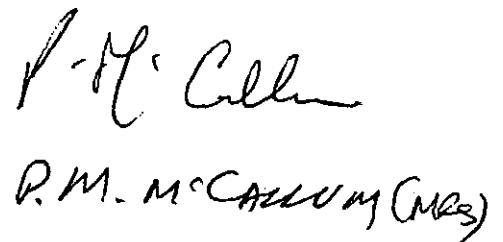 P. McCallum
P. M. McCALLUM (MRS)